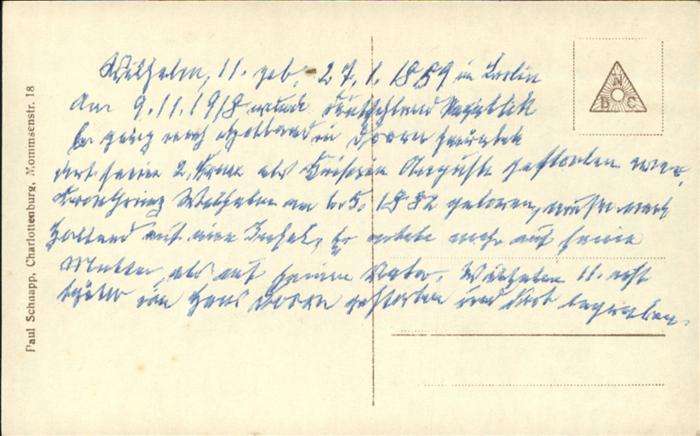 Wilhelm, II. geb. 27.1.1859 in Berlin
Am 9.11.1918 wurde Deutschland Republik
Er ging nach Holland in Doorn heiratete
dort seine 2. Frau als Kaiserin Auguste gestorben war.
Kronprinz Wilhelm am 6.5.1882 geboren, mußte nach
Holland auf eine Insel, Er mehr auf seine
Mutter, als auf seinen Vater. Wilhelm II. ist
später in Haus Doorn gestorben und dort begraben.
Paul Schnapp, Charlottenburg, Mommsenstr. 18
N
B C